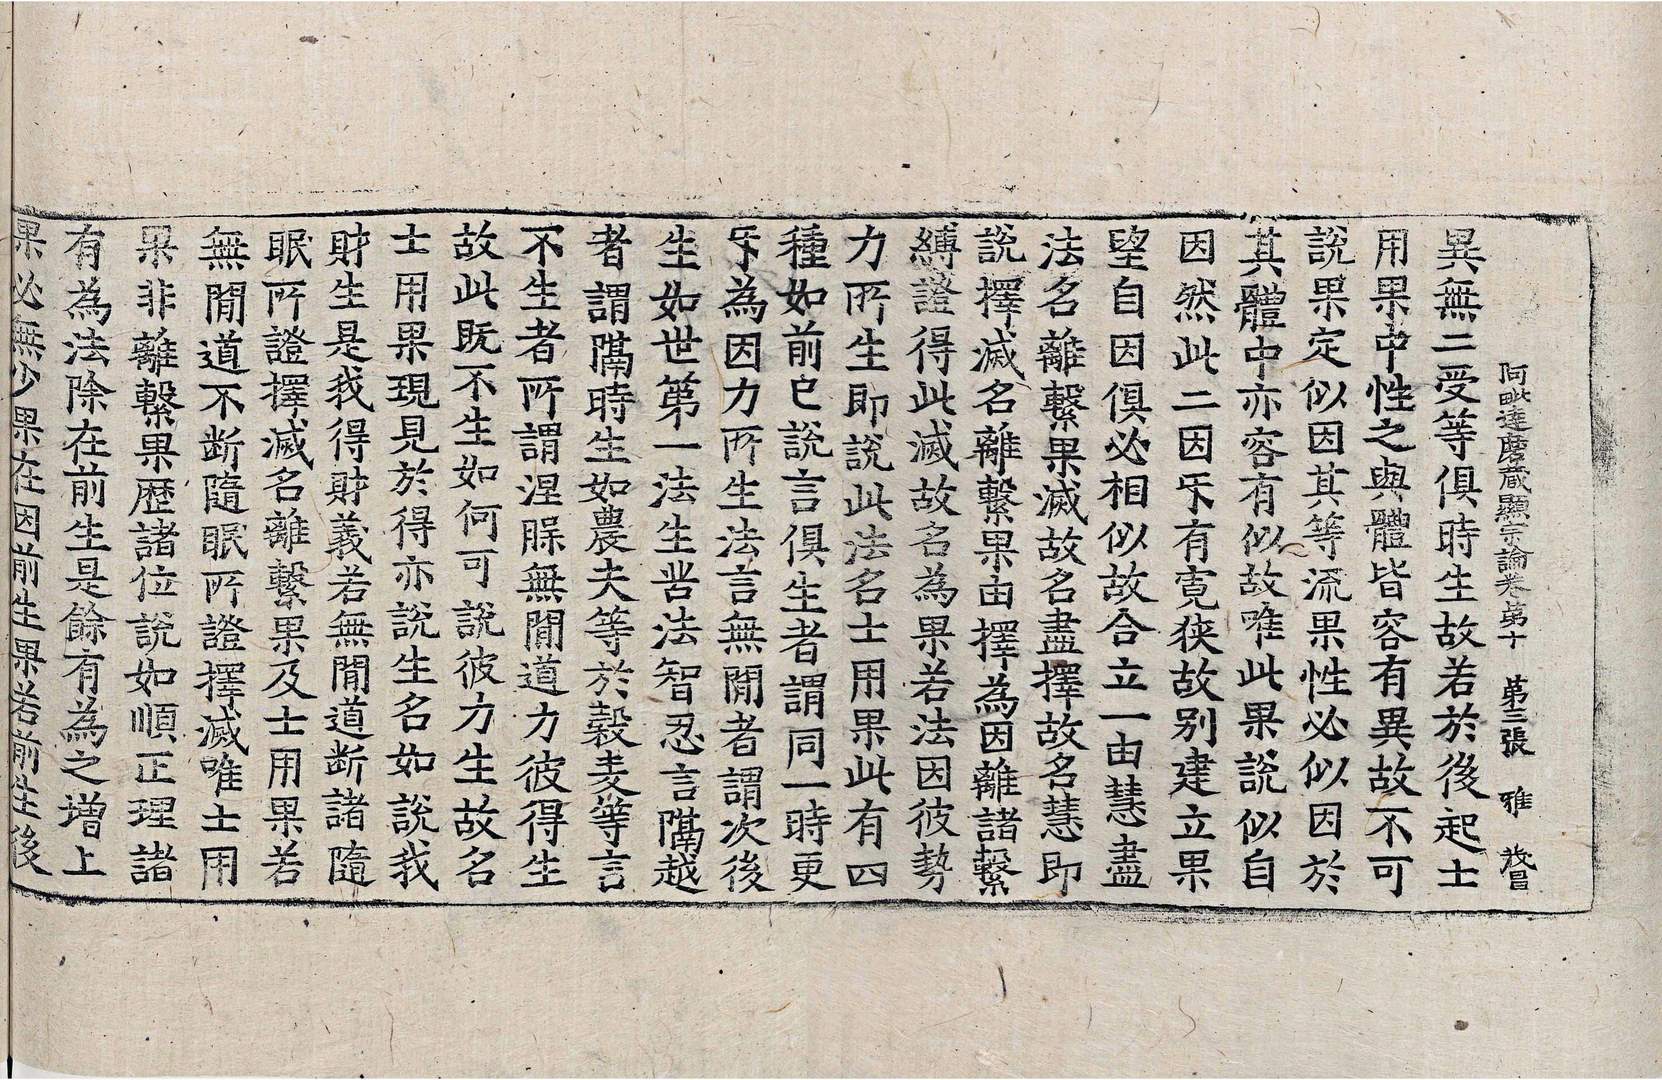 阿毗達磨藏顯宗論卷第十　第三張　雅
異無二受等俱時生故若於後起士
用果中性之與體皆容有異故不可
說果定似因其等流果性必似因於
其體中亦容有似故唯此果說似自
因然此二因乐有寬狹故别建立果
望自因俱必相似故合立一由慧盡
法名離繫果滅故名盡擇故名慧即
說擇滅名離繫果由擇為因離諸繫
縛證得此滅故名為果若法因彼勢
力所生即說此法名士用果此有四
種如前已說言俱生者謂同一時更
乐為因力所生法言無閒者謂次後
生如世第一法生苦法智忍言隔越
者謂隔時生如農夫等於穀麦等言
不生者所謂涅槃無閒道力彼得生
故此既不生如何可說彼力生故名
士用果現見於得亦說生名如說我
財生是我得財義若無閒道断諸隨
眠所證擇滅名離繫果及士用果若
無閒道不断隨眠所證擇滅唯士用
果非離繫果歷諸位說如順正理諸
有為法除在前生是餘有為之增上
果必無少果在因前生果若前生後